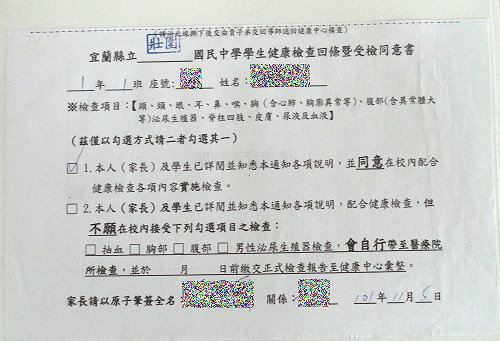 (請沿此線撕下後交由貴子弟交回導師送回健康中心備查)
宜蘭縣立 壯圍 國民中學學生健康檢查回條暨受檢同意書
1 年 1 班 座號: 姓名:
※檢查項目:【頭、頸、眼、耳、鼻、喉、胸(含心肺、胸廓異常等)、腹部(含異常腫大
等)泌尿生殖器、脊柱四肢、皮膚、尿液及血液】
(茲僅以勾選方式請二者勾選其一)
☑ 1.本人(家長)及學生已詳閱並知悉本通知各項說明,並同意在校內配合
健康檢查各項內容實施檢查。
□ 2.本人(家長)及學生已詳閱並知悉本通知各項說明,配合健康檢查,但
不願在校內接受下列勾選項目之檢查:
□ 抽血 □ 胸部 □ 腹部 □ 男性泌尿生殖器檢查,會自行帶至醫療院
所檢查,並於 月 日前繳交正式檢查報告至健康中心彙整。
家長請以原子筆簽全名: 關係: 101 年 11 月 5 日